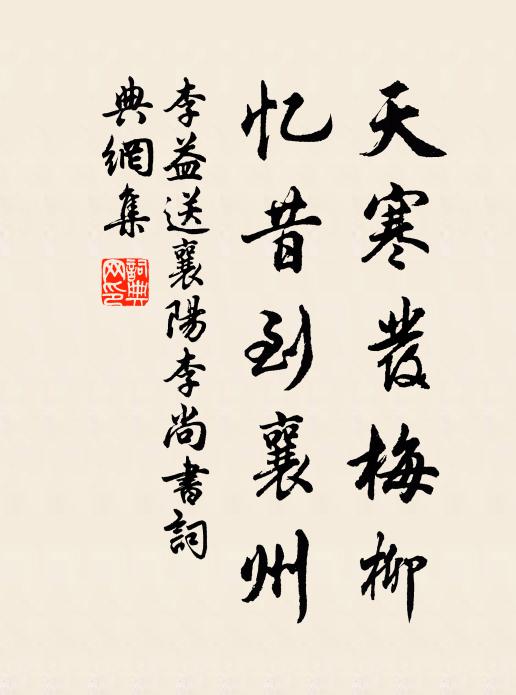 天寒發梅柳
忆昔到襄州
李益送襄陽李尚書詞
典網集
詞典
网印